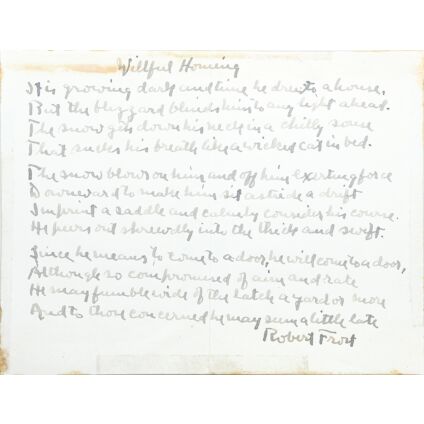 Willful Homing
It is growing dark and time he drew to a house,
But the blizzard blinds him to any light ahead.
The snow gets down his neck in a chilly souse
That sucks his breath like a wicked cat in bed.
The snow blows on him and off him exerting force
Downward to make him sit astride a drift
Imprint a saddle and calmly consider his course.
He peers out shrewdly into the thick and swift.
Since he means to come to a door, he will come to a door,
Although so compromised of aim and rate
He may fumble wide of the latch a yard or more
And to those concerned he may seem a little late
Robert Frost